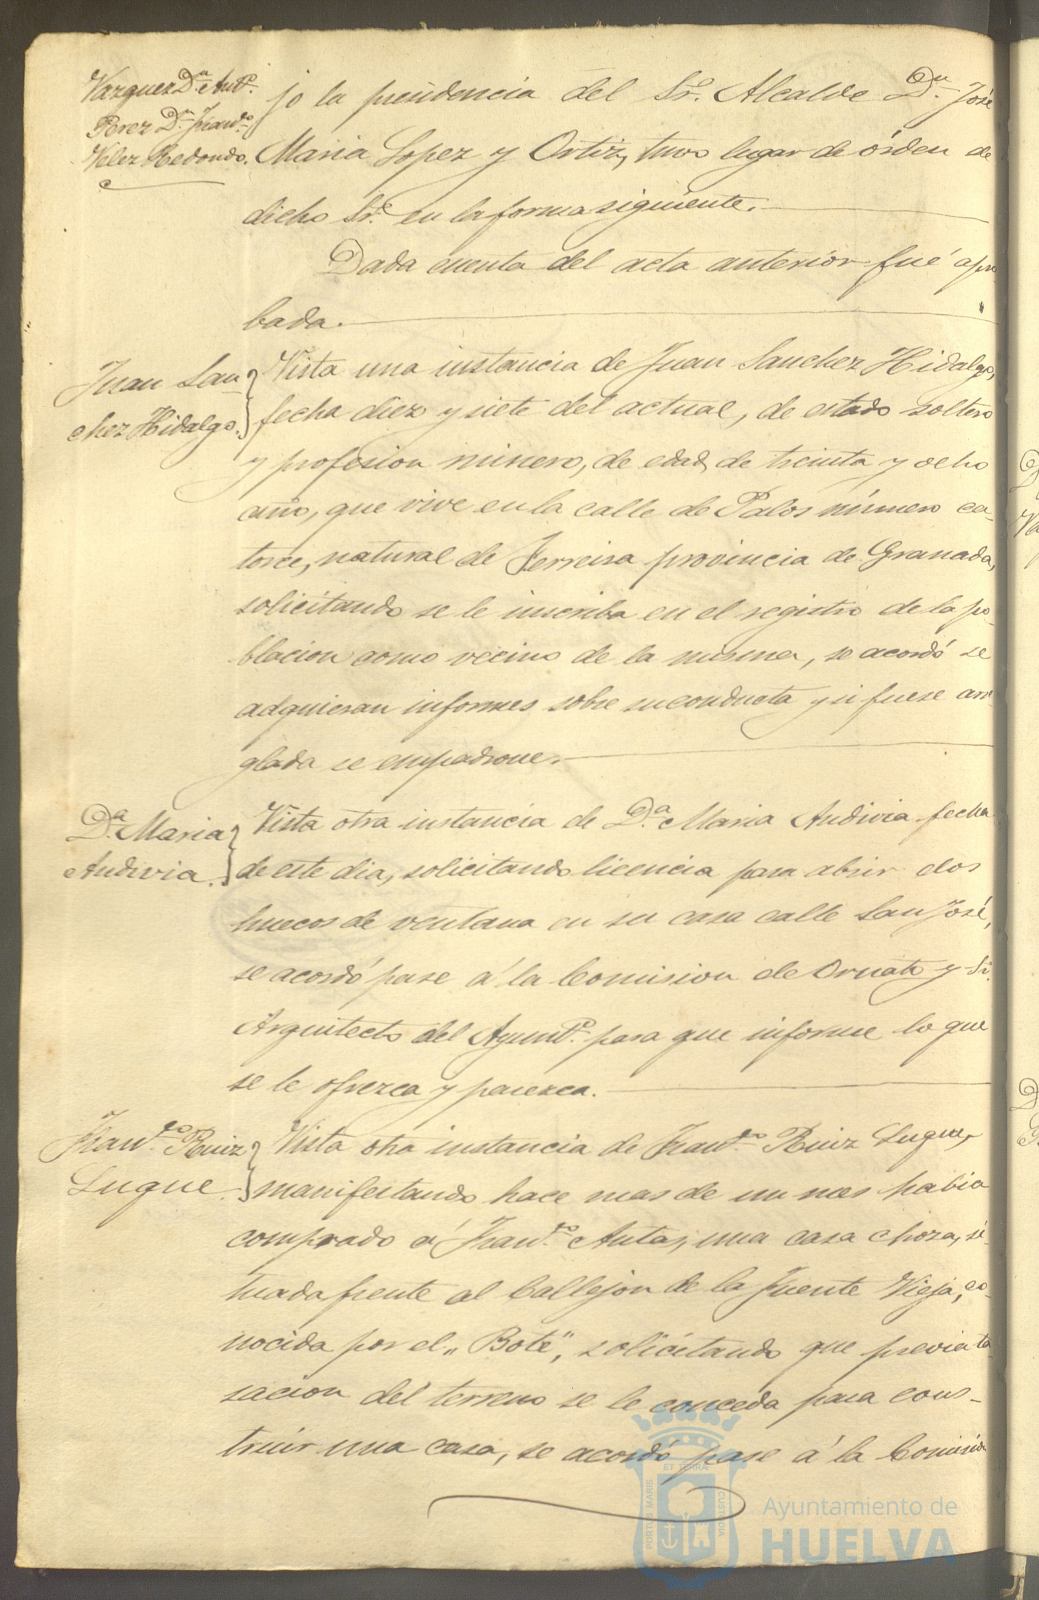 Vazquez D.ª Ant.º
Perez D.n Fran.co
Velez Redondo.
jo la presidencia del Sr. Alcalde D.n José
Maria Lopez y Ortiz, tuvo lugar de órden de
dicho Sr. en la forma siguiente.
Dada cuenta del acta anterior fué apro
bada.
Juan San
chez Hidalgo.
Vista una instancia de Juan Sanchez Hidalgo,
fecha diez y siete del actual, de estado soltero
y profesion minero, de edad de treinta y ocho
años, que vive en la calle de Palos número ca-
torce, natural de Ferreira provincia de Granada,
solicitando se le inscriba en el registro de la po-
blacion como vecino de la misma, se acordó se
adquieran informes sobre su conducta y si fuese arre
glada se empadrone.
D.ª Maria
Audivia.
Vista otra instancia de D.ª Maria Audivia fecha
de este dia, solicitando licencia para abrir dos
huecos de ventana en su casa calle San José,
se acordó pase á la Comision de Ornato y Sr.
Arquitecto del Ayunt.º para que informe lo que
se le ofrezca y parezca.
Fran.co Ruiz
Luque
Vista otra instancia de Fran.co Ruiz Luque,
manifestando hace mas de un mes habia
comprado á Fran.co una casa choza, si-
tuada frente al Callejon de la Fuente Vieja, co-
nocida por el "Bote", solicitando que previa ta
sacion del terreno se le conceda para cons-
truir una casa, se acordó pase á la Comision
PORTUS MARIS ET TERRÆ CUSTODIA
Ayuntamiento de
HUELVA